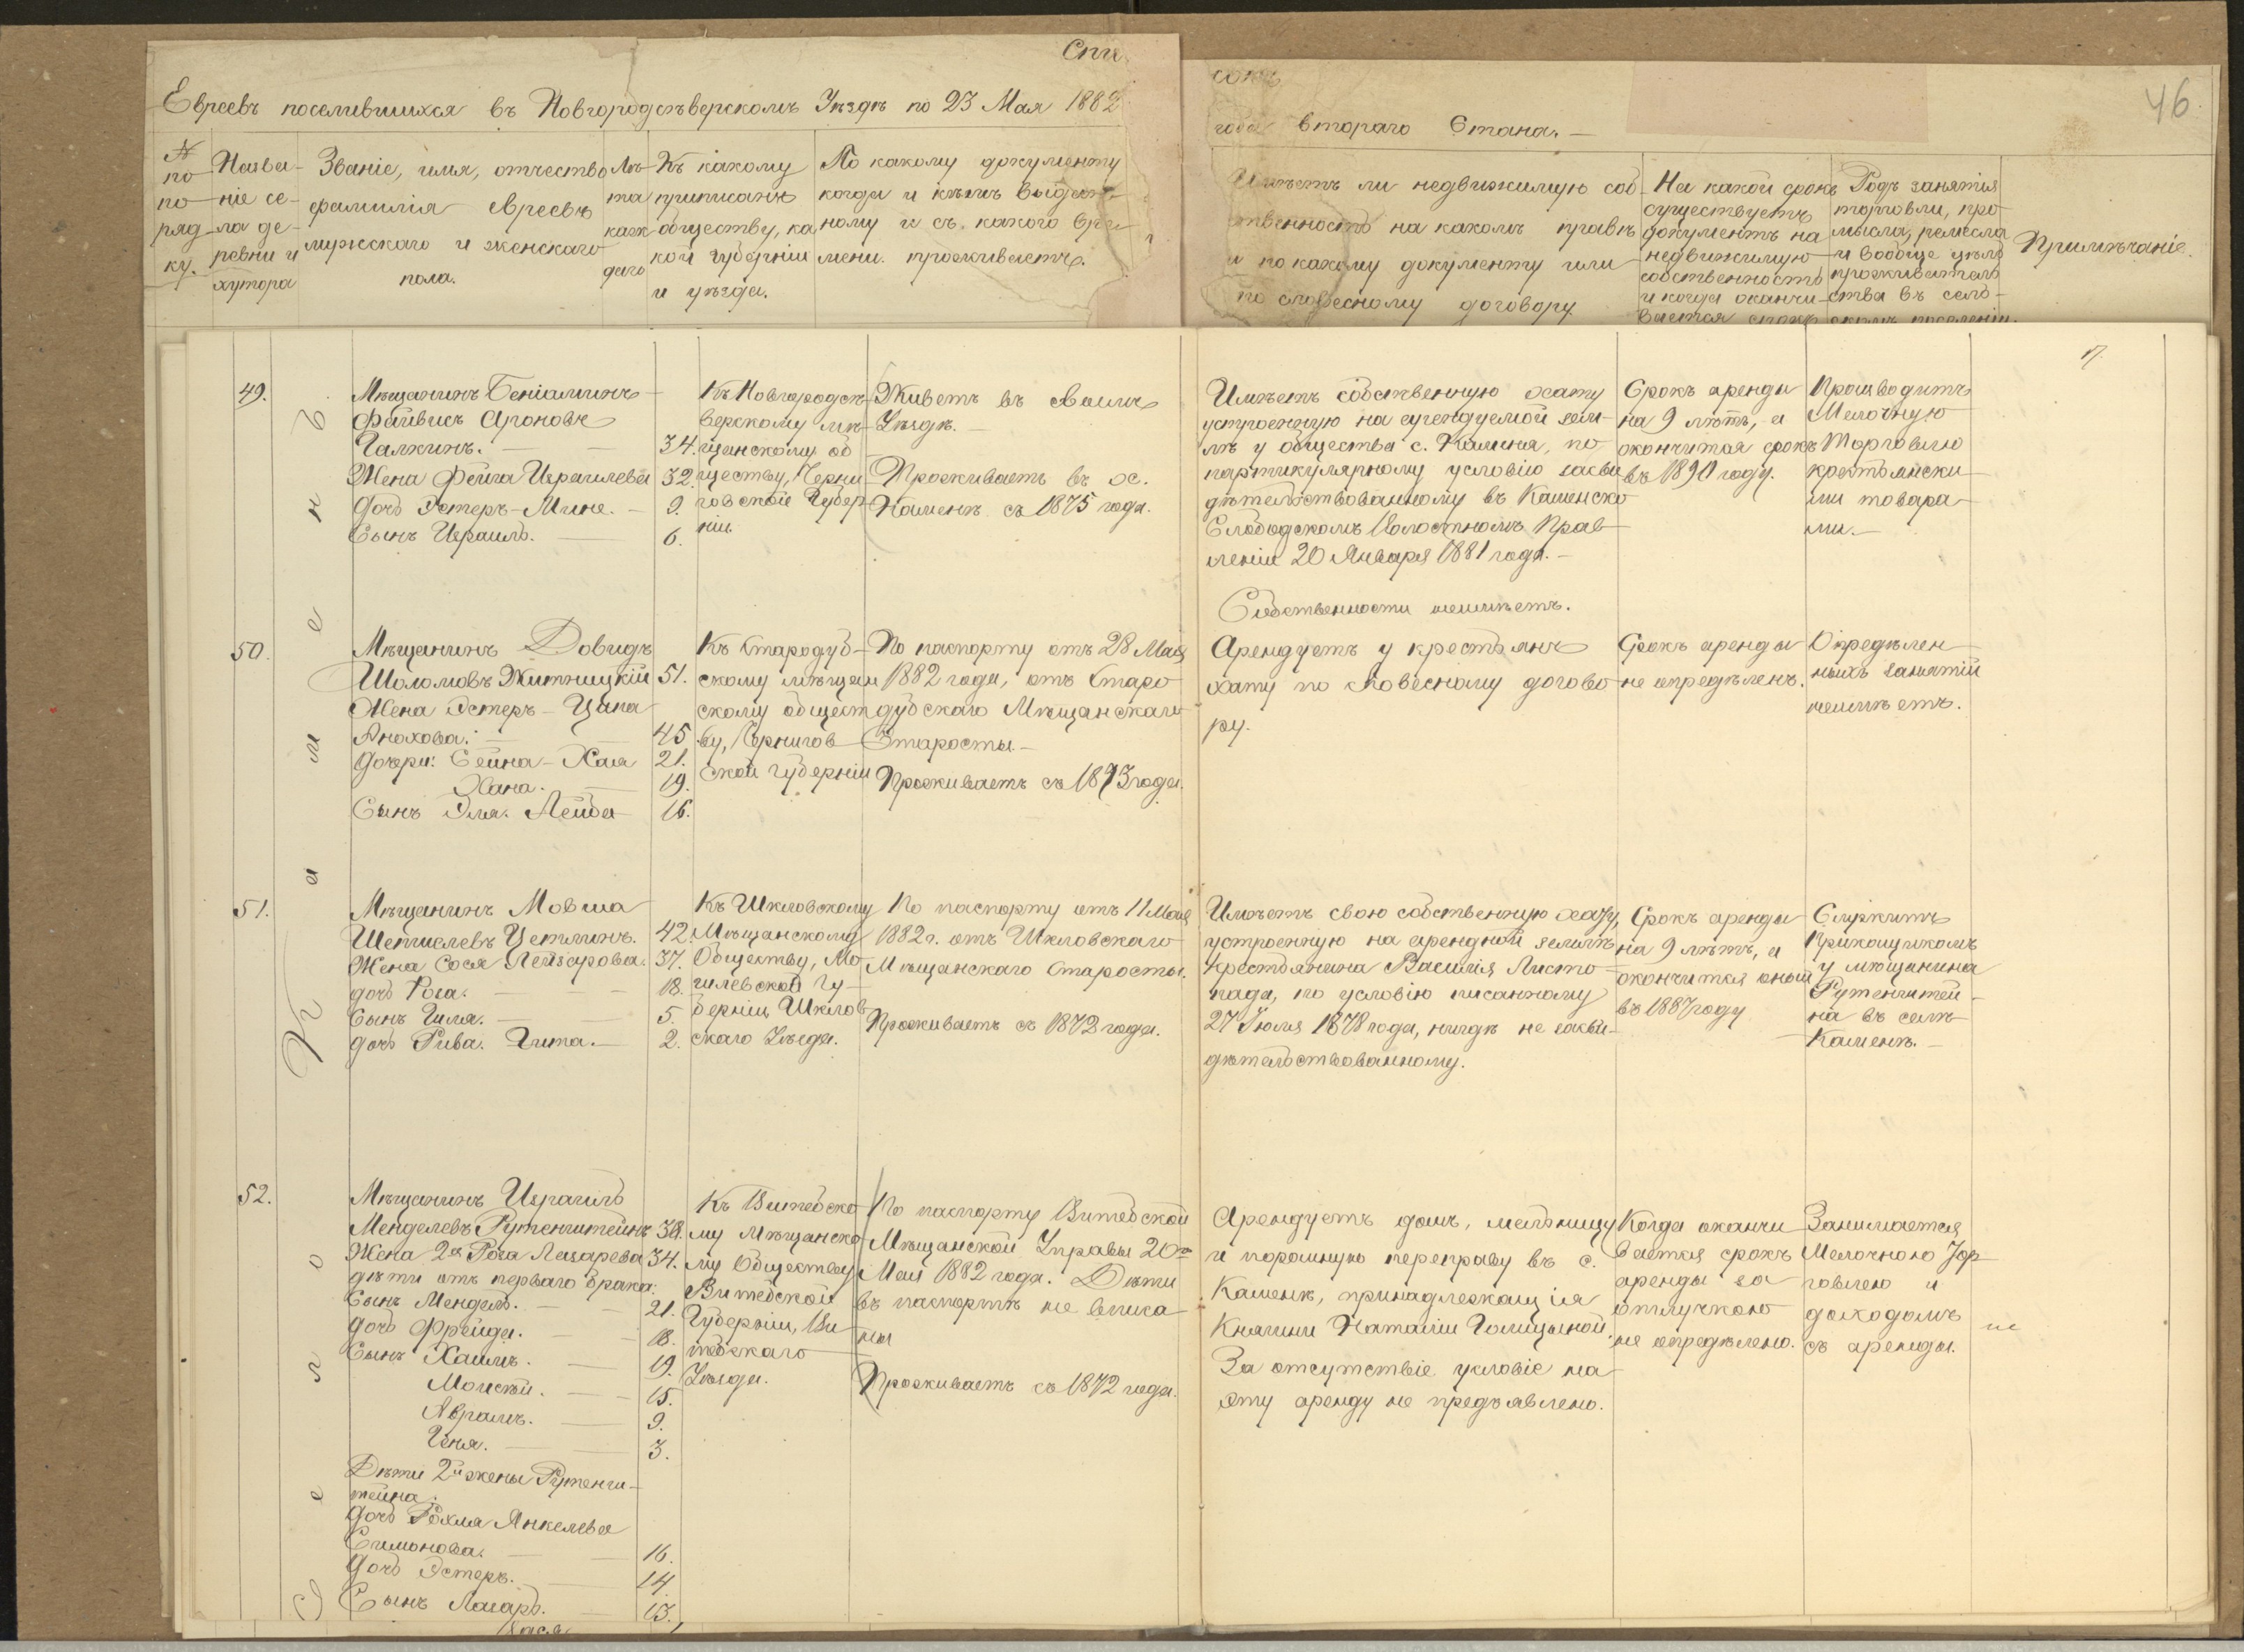 Спи
сокъ
Евреевъ поселившихся въ Новгородсѣверскомъ Уѣздѣ по 23 Мая 1882
года втораго Стана.
46
№ по по-ряд-ку.
Назва-ніе се-ла де-ревни и хутора
Званіе, имя, отчество
фамилія евреевъ
мужскаго и женскаго
пола.
Лѣ-
та
каж
даго
Къ какому
приписанъ
обществу, ка
кой губерніи
и уѣзда.
По какому документу
когда и кѣмъ выдан-
ному и съ какого вре-
мени проживаетъ.
Имѣетъ ли недвижимую соб-
ственность на какомъ правѣ
и по какому документу или
по словесному договору
На какой срокъ
существуетъ
документъ на
недвижимую
собственность
и когда оканчи-
вается срокъ
Родъ занятія
торговли, про
мысла, ремесла
и вообще цѣль
проживатель
ства въ сель-
скомъ поселеніи.
Примѣчаніе.
17.
Село Каменъ
49.
Мѣщанинъ Беніаминъ
Файвисъ Ароновъ
Галкинъ. 34.
Жена Фейга Израилева 32.
Дочь Эстеръ-Мине. 9.
Сынъ Израиль. 6.
Къ Новгородсѣ-
верскому мѣ-
щанскому об
ществу, Черни
говской Губер
ніи.
Живетъ въ своемъ
Уѣздѣ.
Проживаетъ въ с.
Каменѣ съ 1875 года.
Имѣетъ собственную хату
устроенную на арендуемой зем-
лѣ у общества с. Каменя, по
партикулярному условію засви
дѣтельствованному въ Каменско
Слободскомъ Волостномъ Прав-
леніи 20 Января 1881 года.
Срокъ аренды
на 9 лѣтъ, а
окончится срокъ
въ 1890 году.
Производитъ
Мелочную
Торговлю
крестьянски
ми товара
ми.
Собственности неимѣетъ.
50.
Мѣщанинъ Довидъ
Шоломовъ Житницкій 51.
Жена Эстеръ-Цина
Аюхова. 45
Дочери: Сейна-Хая 21.
Хана. 19.
Сынъ Эля. Лейба 16.
Къ Стародуб-
скому мѣщан
скому общест
ву, Чернигов
ской губерніи
По паспорту отъ 28 Мая
1882 года, отъ Старо
дубскаго Мѣщанскаго
Старосты.
Проживаетъ съ 1873 года.
Арендуетъ у крестьянъ
хату по словесному догово
ру.
Срокъ аренды
не опредѣленъ.
Опредѣлен
ныхъ занятій
неимѣетъ.
51.
Мѣщанинъ Мовша
Шепшелевъ Цетлинъ. 42.
Жена Сося Лейзерова. 37.
дочь Роза. 18.
Сынъ Гиля. 5.
дочь Рива. Гита. 2.
Къ Шкловскому
Мѣщанскому
Обществу, Мо
гилевской Гу-
берніи Шклов
скаго Уѣзда.
По паспорту отъ 11 Мая
1882 г. отъ Шкловскаго
Мѣщанскаго Старосты.
Проживаетъ съ 1872 года.
Имѣетъ свою собственную хату,
устроенную на арендной землѣ
крестьянина Василія Листо
пада, по условію писанному
27 Іюля 1878 года, нигдѣ не засви-
дѣтельствованному.
Срокъ аренды
на 9 лѣтъ, а
окончится оный
въ 1887 году
Служитъ
прикащикомъ
у мѣщанина
Рутенштей-
на въ селѣ
Каменѣ.
52.
Мѣщанинъ Израиль
Менделевъ Рутенштейнъ 38.
Жена 2я Роза Лазарева 34.
дѣти отъ перваго брака:
Сынъ Мендель. 21.
дочь Фрейда. 18.
Сынъ Хаимъ. 19.
Моисей. 15.
Абрамъ. 9.
Геня. 3.
Дѣти 2й жены Рутенш-
тейна:
дочь Рохля Янкелева
Симонова. 16.
Дочь Эстеръ. 14.
Сынъ Лазарь. 13.
Къ Витебско
му Мѣщанско
му Обществу
Витебской
Губерніи, Ви
тебскаго
Уѣзда.
По паспорту Витебской
Мѣщанской Управы 20го
Мая 1882 года. Дѣти
въ паспортѣ не вписа
ны
Проживаетъ съ 1872 года.
Арендуетъ домъ, мельницу
и паромную переправу въ с.
Каменѣ, принадлежащія
Княгини Наталіи Голицыной.
За отсутствіе условіе на
эту аренду не предъявлено.
Когда оканчи
вается срокъ
аренды за
отлучкою
не опредѣлено.
Занимается
Мелочною Тор
говлею и
доходомъ
съ аренды.